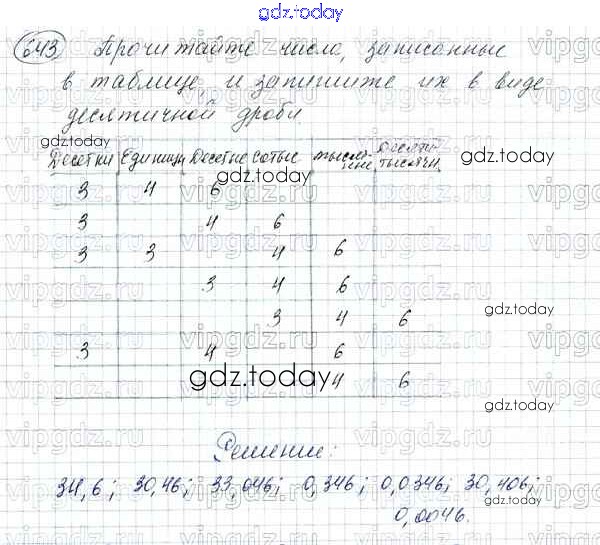 gdz.today
643 Прочитайте число, записанные
в таблице, и запишите их в виде
десятичной дроби
Десятки Единицы Десятые сотые тысячные десяти-тысячн.
gdz.today
gdz.today
3 4 6
3 4 6
3 3 4 6
3 4 6
gdz.today
3 4 6
3 4 6
gdz.today
4 6
gdz.today
Решение:
34,6; 30,46; 33,046; 0,346; 0,0346; 30,406;
gdz.today
0,0046.